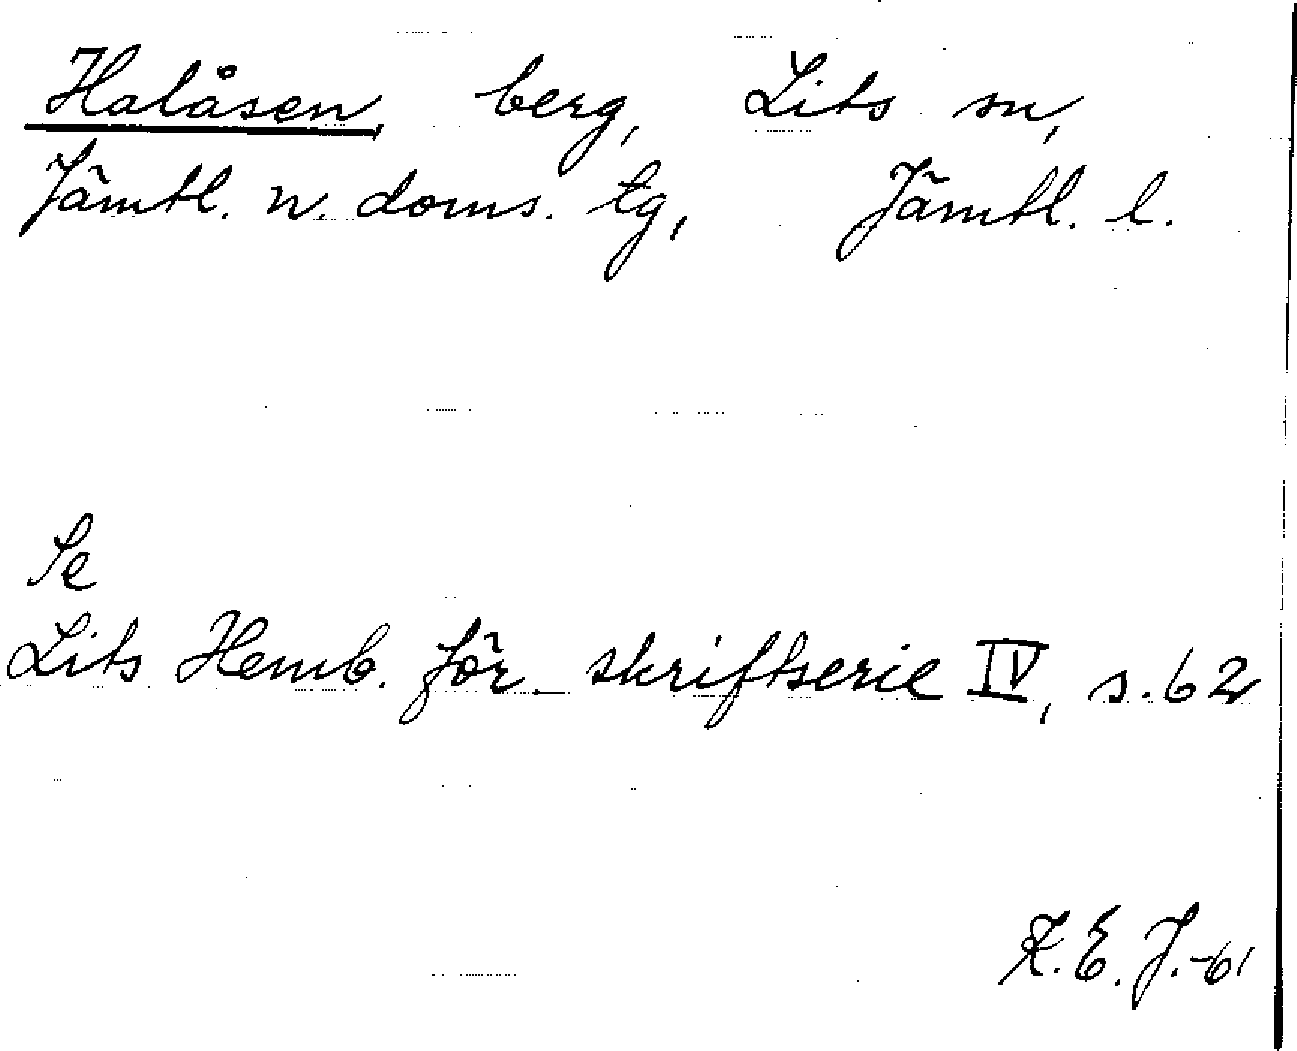 Halåsen, berg, Lits sn,
Jämtl. n. doms. tg, Jämtl. l.
Se
Lits Hemb. för. skriftserie IV, s. 62
K. E. J. -61